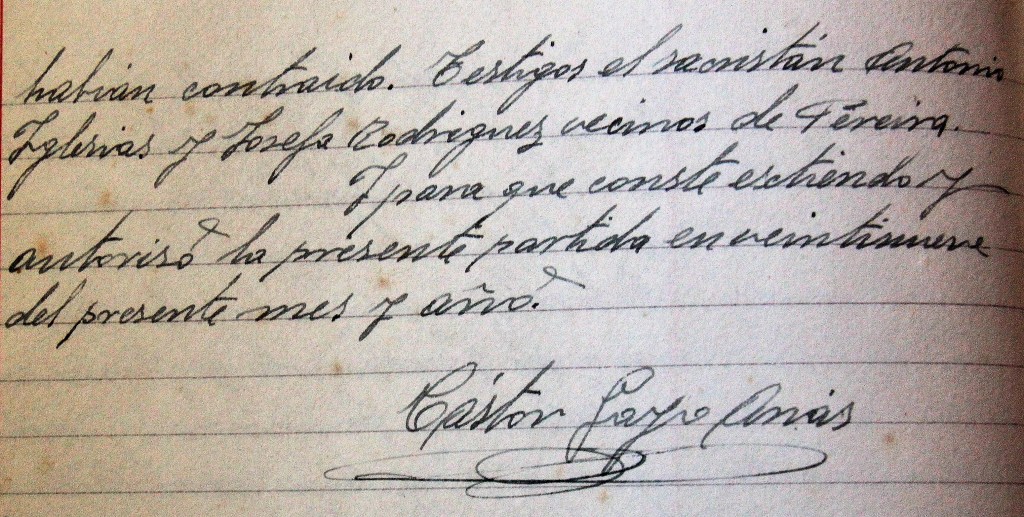 habían contraido. Testigos el sacristán Antonio
Iglesias y Josefa Rodriguez vecinos de Pereira.
Y para que conste extiendo y
autorisó la presente partida en veintinueve
del presente mes y año.
Cástor Gayo Arias